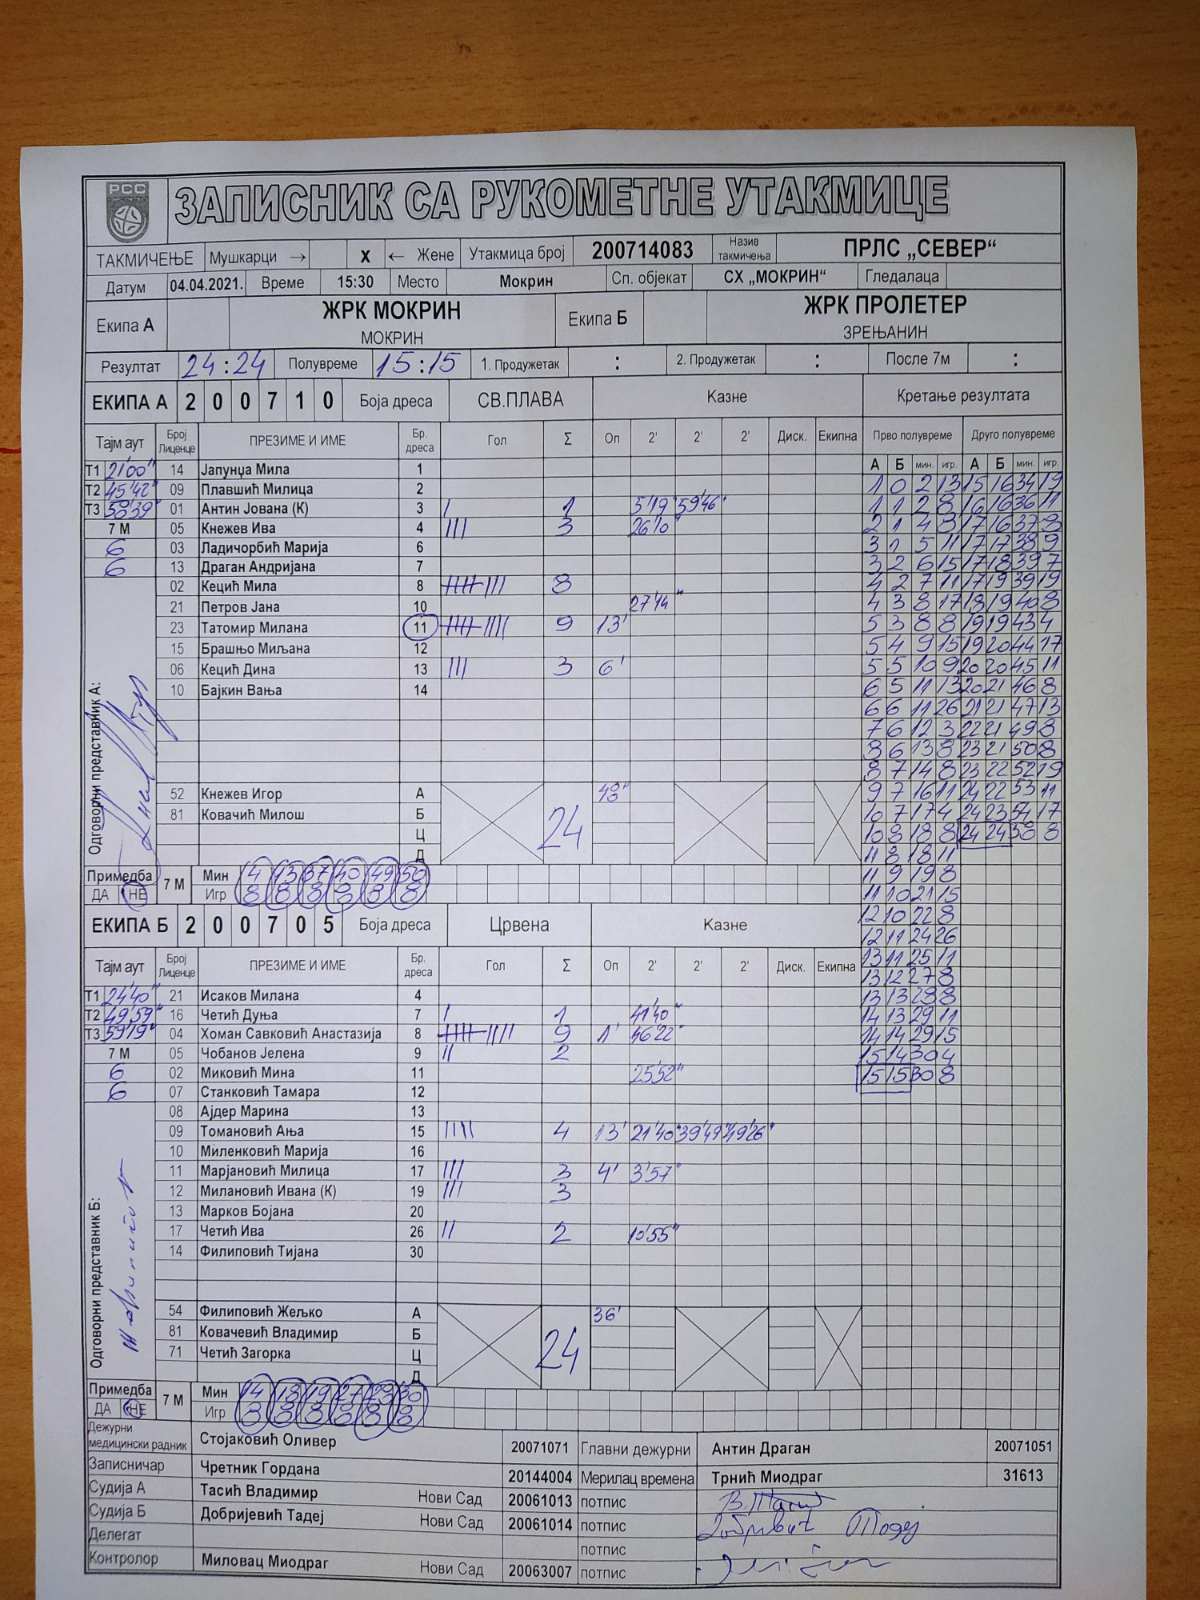 РСС
ЗАПИСНИК СА РУКОМЕТНЕ УТАКМИЦЕ
ТАКМИЧЕЊЕ Мушкарци → x ← Жене Утакмица број 200714083 Назив такмичења ПРЛС „СЕВЕР“
Датум 04.04.2021. Време 15:30 Место Мокрин Сп. објекат СХ „МОКРИН“ Гледалаца
Екипа А ЖРК МОКРИН Екипа Б ЖРК ПРОЛЕТЕР
МОКРИН ЗРЕЊАНИН
Резултат 24:24 Полувреме 15:15 1. Продужетак : 2. Продужетак : После 7м :
ЕКИПА А 2 0 0 7 1 0 Боја дреса СВ.ПЛАВА Казне Кретање резултата
Тајм аут Број Лиценце ПРЕЗИМЕ И ИМЕ Бр. дреса Гол Σ Оп 2' 2' 2' Диск. Екипна Прво полувреме Друго полувреме
А Б мин. игр. А Б мин. игр.
Т1 21'00" 14 Јапунџа Мила 1
Т2 45'42" 09 Плавшић Милица 2
Т3 58'39" 01 Антин Јована (К) 3 I 1 5'19 59'46"
7 М 05 Кнежев Ива 4 III 3 26'10"
6 03 Ладичорбић Марија 6
6 13 Драган Андријана 7
02 Кецић Мила 8 8
21 Петров Јана 10 27'14"
23 Татомир Милана 11 9 13'
15 Брашњо Миљана 12
06 Кецић Дина 13 III 3 6'
10 Бајкин Вања 14
Одговорни представник А:
52 Кнежев Игор А 48'
81 Ковачић Милош Б 24
Ц
Д
1 0 2 13 15 16 34 19
1 1 2 8 16 16 36 11
2 1 4 8 17 16 37 8
3 1 5 11 17 17 38 9
3 2 6 15 17 18 39 7
4 2 7 11 17 19 39 19
4 3 8 17 18 19 40 8
5 3 8 8 19 19 43 4
5 4 9 15 19 20 44 17
5 5 10 9 20 20 45 11
6 5 11 13 20 21 46 8
6 6 11 26 21 21 47 13
7 6 12 3 22 21 49 8
8 6 13 8 23 21 50 8
8 7 14 8 23 22 52 19
9 7 16 11 24 22 53 11
10 7 17 4 24 23 54 17
10 8 18 8 24 24 58 8
11 8 18 11
11 9 19 8
11 10 21 15
12 10 22 8
12 11 24 26
13 11 25 11
13 12 27 8
13 13 28 8
14 13 29 11
14 14 29 15
15 14 30 4
15 15 30 8
Примедба 7 М Мин 4 13 37 40 49 50
ДА НЕ Игр 8 8 8 8 8 8
ЕКИПА Б 2 0 0 7 0 5 Боја дреса Црвена Казне
Тајм аут Број Лиценце ПРЕЗИМЕ И ИМЕ Бр. дреса Гол Σ Оп 2' 2' 2' Диск. Екипна
Т1 24'40" 21 Исаков Милана 4
Т2 49'59" 16 Четић Дуња 7 I 1 41'40"
Т3 59'19" 04 Хоман Савковић Анастазија 8 9 1' 46'22"
7 М 05 Чобанов Јелена 9 II 2
6 02 Миковић Мина 11 25'52"
6 07 Станковић Тамара 12
08 Ајдер Марина 13
09 Томановић Ања 15 IIII 4 13' 21'40" 39'49" 49'26"
10 Миленковић Марија 16
11 Марјановић Милица 17 III 3 4' 3'57"
12 Милановић Ивана (К) 19 III 3
13 Марков Бојана 20
17 Четић Ива 26 II 2 10'55"
14 Филиповић Тијана 30
Одговорни представник Б:
54 Филиповић Жељко А 36'
81 Ковачевић Владимир Б 24
71 Четић Загорка Ц
Д
Примедба 7 М Мин 14 18 19 27 28 30
ДА НЕ Игр 8 8 8 8 8 8
Дежурни медицински радник Стојаковић Оливер 20071071 Главни дежурни Антин Драган 20071051
Записничар Чретник Гордана 20144004 Мерилац времена Трнић Миодраг 31613
Судија А Тасић Владимир Нови Сад 20061013 потпис
Судија Б Добријевић Тадеј Нови Сад 20061014 потпис
Делегат потпис
Контролор Миловац Миодраг Нови Сад 20063007 потпис